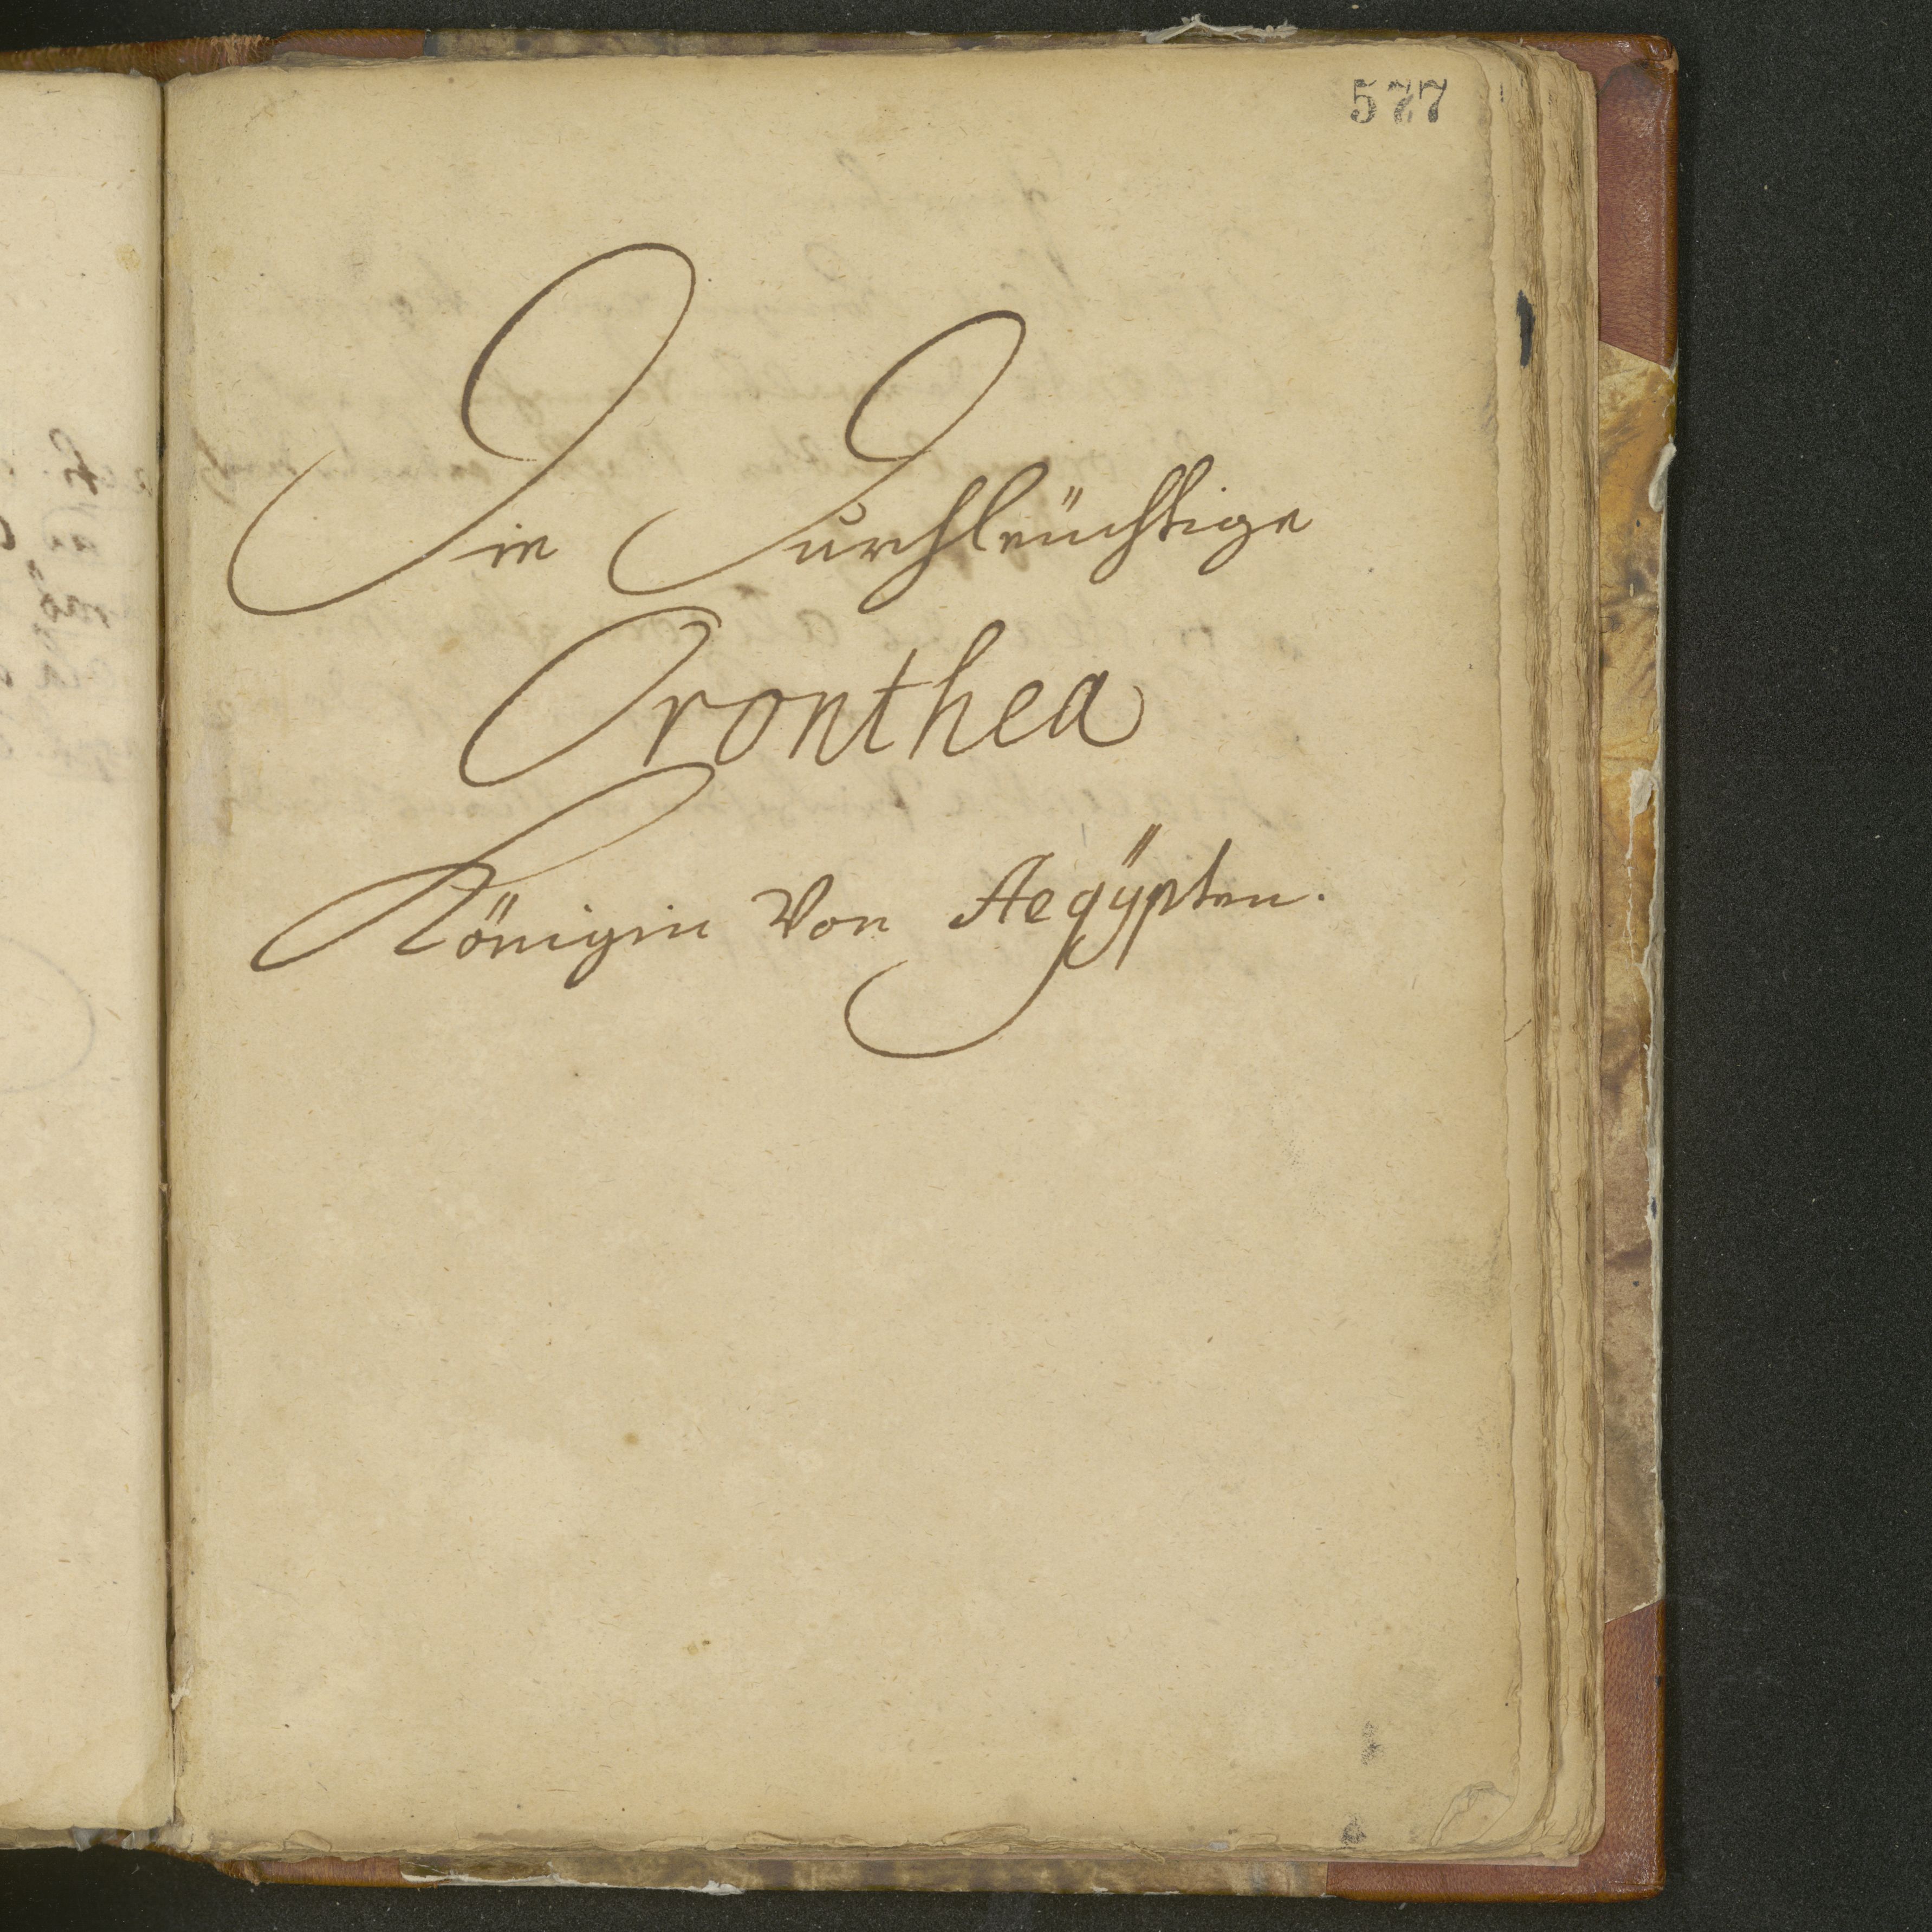 577
Die Durchleüchtige
Oronthea
Königin Von Aegÿpten.